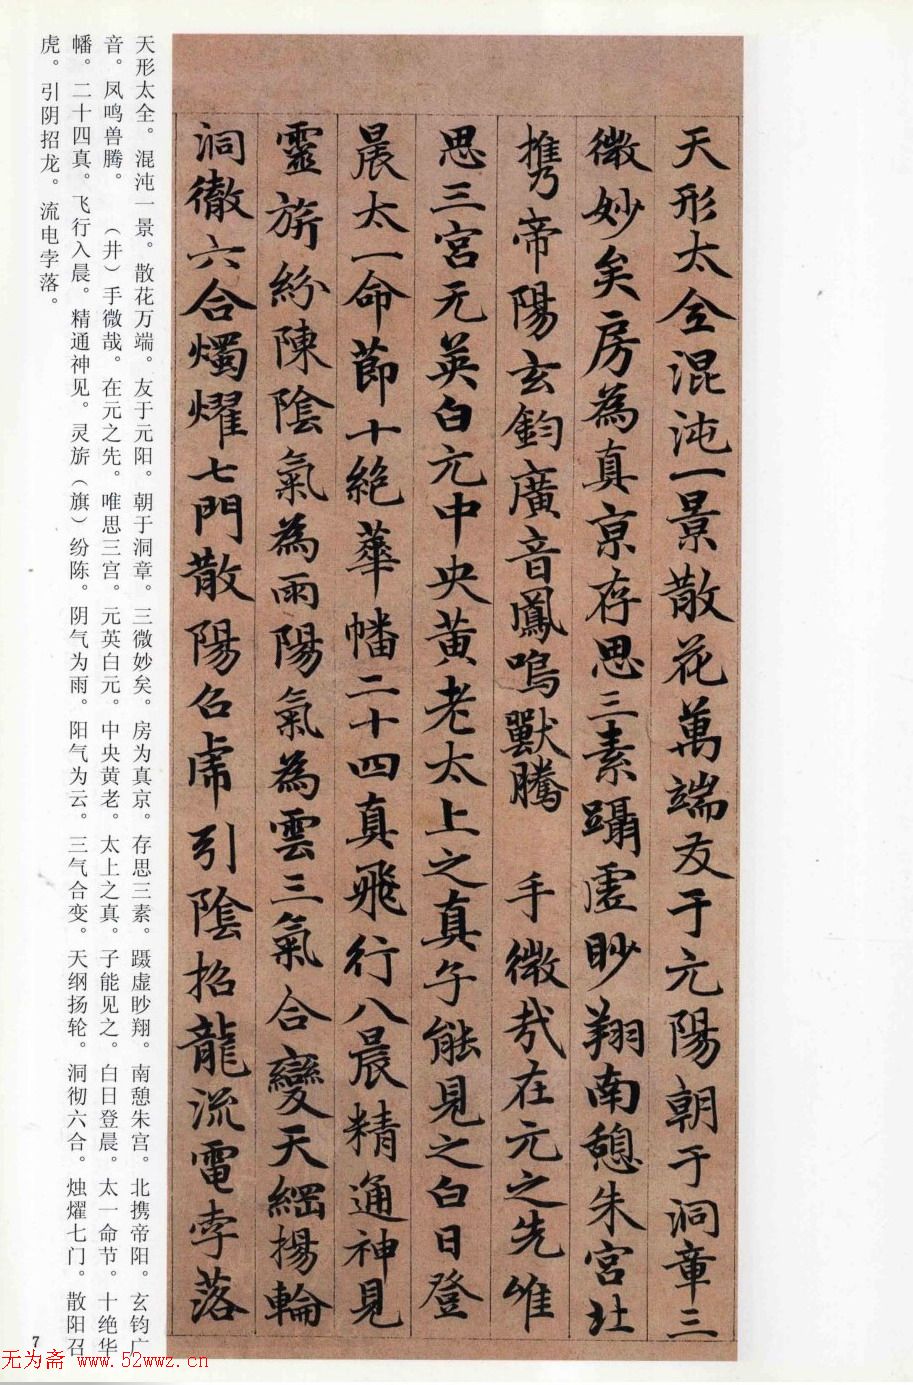 天形太全混沌一景散花萬端友于元陽朝于洞章三
微妙矣房為真京存思三素躡虛眇翔南憩朱宮北
攜帝陽玄鈞廣音鳳鳴獸騰 手微哉在元之先唯
思三宮元英白元中央黃老太上之真子能見之白日登
晨太一命節十絕華幡二十四真飛行入晨精通神見
靈旂紛陳陰氣為雨陽氣為雲三氣合變天綱揚輪
洞徹六合燭燿七門散陽召虎引陰招龍流電孛落
天形太全。混沌一景。散花万端。友于元阳。朝于洞章。三微妙矣。房为真京。存思三素。蹑虚眇翔。南憩朱宫。北携帝阳。玄钧广
音。凤鸣兽腾。（井）手微哉。在元之先。唯思三宫。元英白元。中央黄老。太上之真。子能见之。白日登晨。太一命节。十绝华
幡。二十四真。飞行入晨。精通神见。灵旂（旗）纷陈。阴气为雨。阳气为云。三气合变。天纲扬轮。洞彻六合。烛燿七门。散阳召
虎。引阴招龙。流电孛落。
7
无为斋 www.52wwz.cn